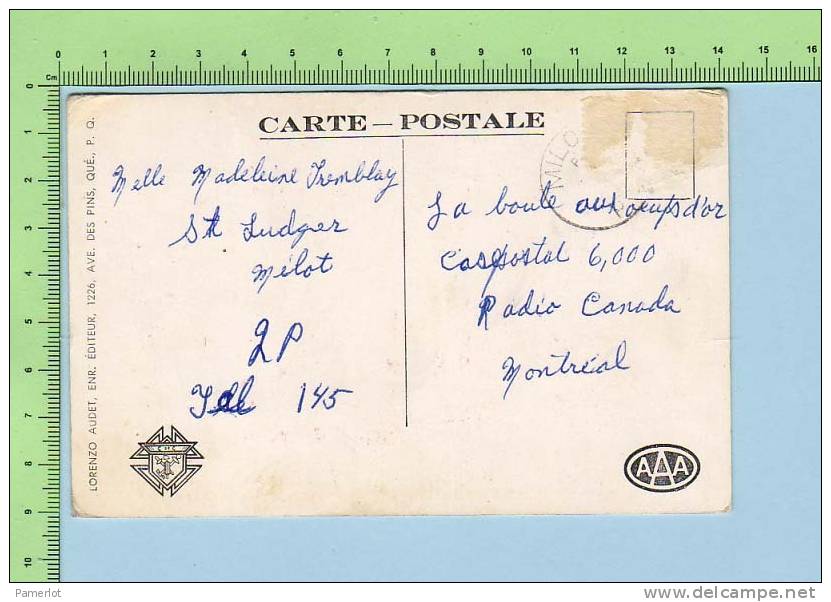 CARTE — POSTALE
Melle Madeleine Tremblay
St Ludger
Milot
2P
Tel 145
La boule aux oeufs d'or
Caspostal 6,000
Radio Canada
Montréal
LORENZO AUDET, ENR. ÉDITEUR, 1226, AVE. DES PINS, QUÉ., P. Q.
MILO
AAA
Cm 0 1 2 3 4 5 6 7 8 9 10 11 12 13 14 15 16
0 1 2 3 4 5 6 7 8 9 10
Pamerlot
delcampe.net